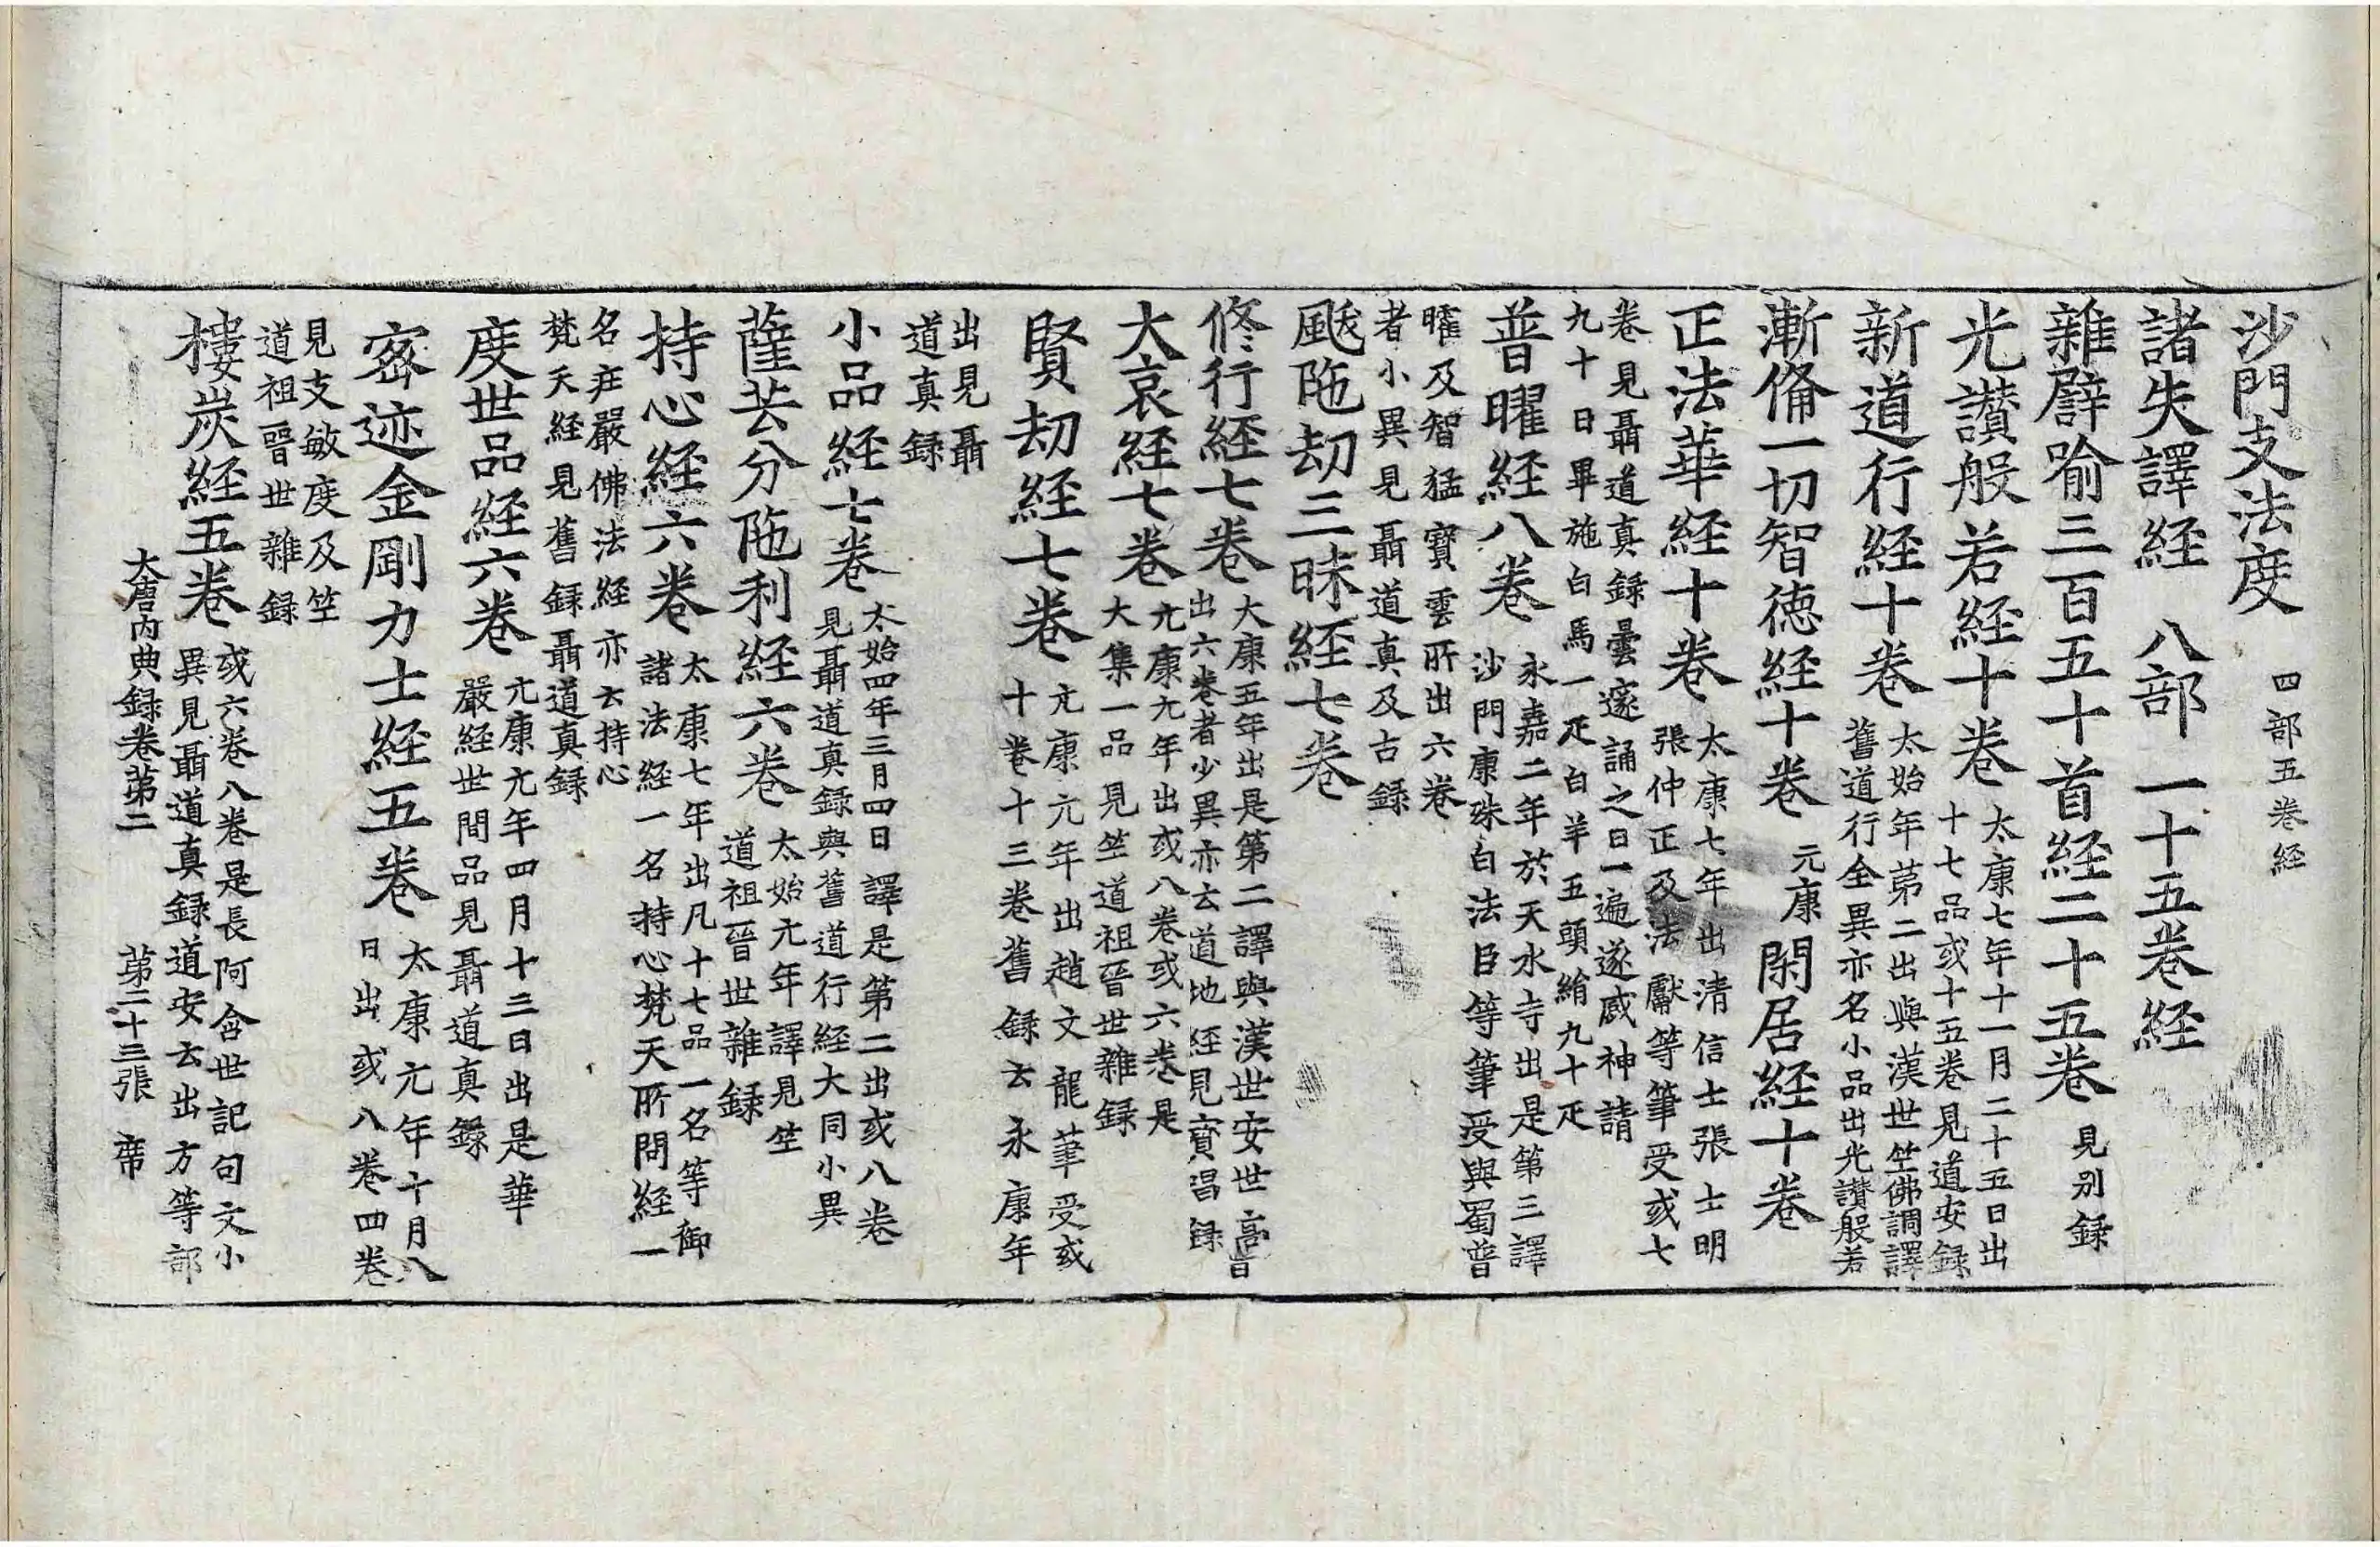 沙門支法度 四部五卷経
諸失譯経 八部一十五卷経
雜譬喻三百五十首経二十五卷 見别録
光讃般若経十卷 太康七年十一月二十五日出
十七品或十五卷見道安録
新道行経十卷 太始年苐二出與漢世竺佛調譯
舊道行全異亦名小品出光讃般若
漸俻一切智徳経十卷 元康 閑居経十卷
正法華経十卷 太康七年出清信士張士明
張仲正及法獻等筆受或七
卷見聶道真録曇邃誦之日一遍遂感神請
九十日畢施白馬一疋白羊五頭絹九十疋
普曜経八卷 永嘉二年於天水寺出是第三譯
沙門康殊白法巨等筆受與蜀普
曜及智猛寳雲所出六卷
者小異見聶道真及古録
颰陁劫三昧経七卷
修行経七卷 大康五年出是第二譯與漢世安世高昔
出六卷者少異亦云道地経見寳唱録
大哀経七卷 元康元年出或八卷或六卷是
大集一品見竺道祖晉世雜録
賢劫経七卷 元康元年出趙文龍筆受或
十卷十三卷舊録云永康年
出見聶
道真録
小品経七卷 太始四年三月四日譯是第二出或八卷
見聶道真録與舊道行経大同小異
薩芸分陁利経六卷 太始元年譯見竺
道祖晉世雜録
持心経六卷 太康七年出凡十七品一名等御
諸法経一名持心梵天所問経一
名庄嚴佛法経亦云持心
梵天経見舊録聶道真録
度世品経六卷 元康元年四月十三日出是華
嚴経世間品見聶道真録
宻迹金剛力士経五卷 太康元年十月八
日出或八卷四卷
見支敏度及竺
道祖晉世雜録
樓炭経五卷 或六卷八卷是長阿含世記句文小
異見聶道真録道安云出方等部
大唐内典録卷苐二 苐二十三張 席